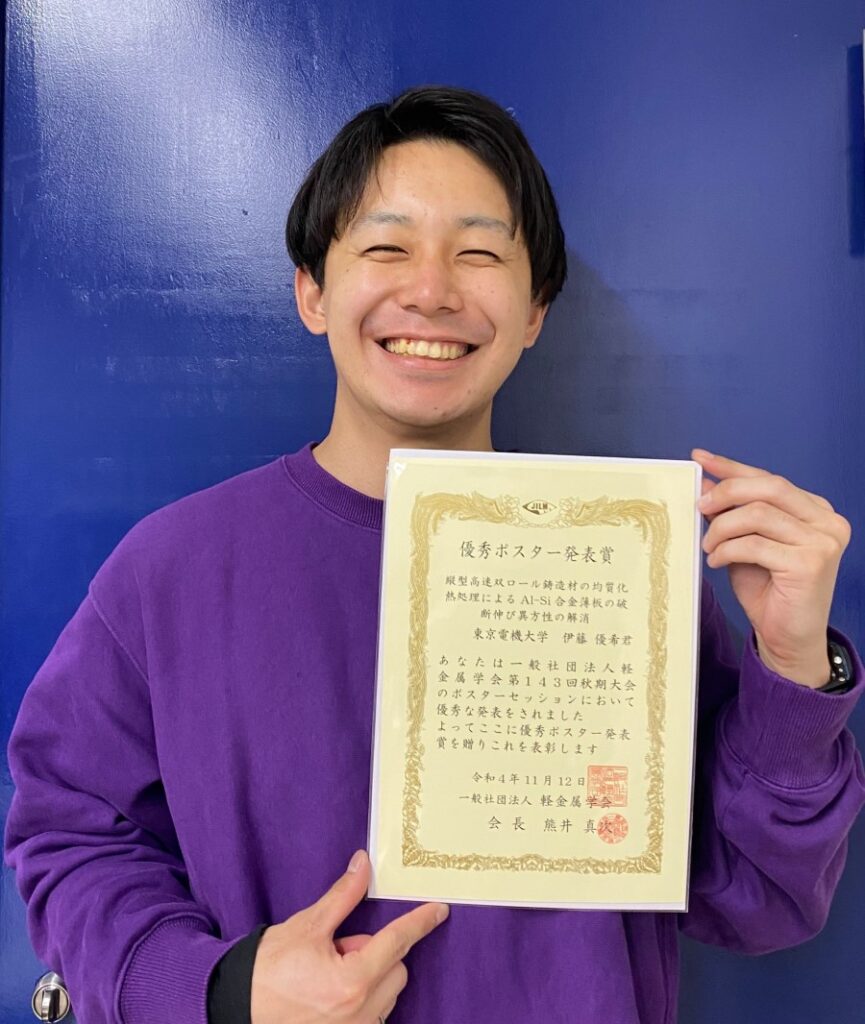 JILM
優秀ポスター発表賞
縦型高速双ロール鋳造材の均質化
熱処理による Al-Si 合金薄板の破
断伸び異方性の解消
東京電機大学 伊藤 優希君
あなたは一般社団法人軽
金属学会第143回秋期大会
のポスターセッションにおいて
優秀な発表をされました
よってここに優秀ポスター発表
賞を贈りこれを表彰します
令和4年11月12日
一般社団法人 軽金属学会
会長 熊井 真次